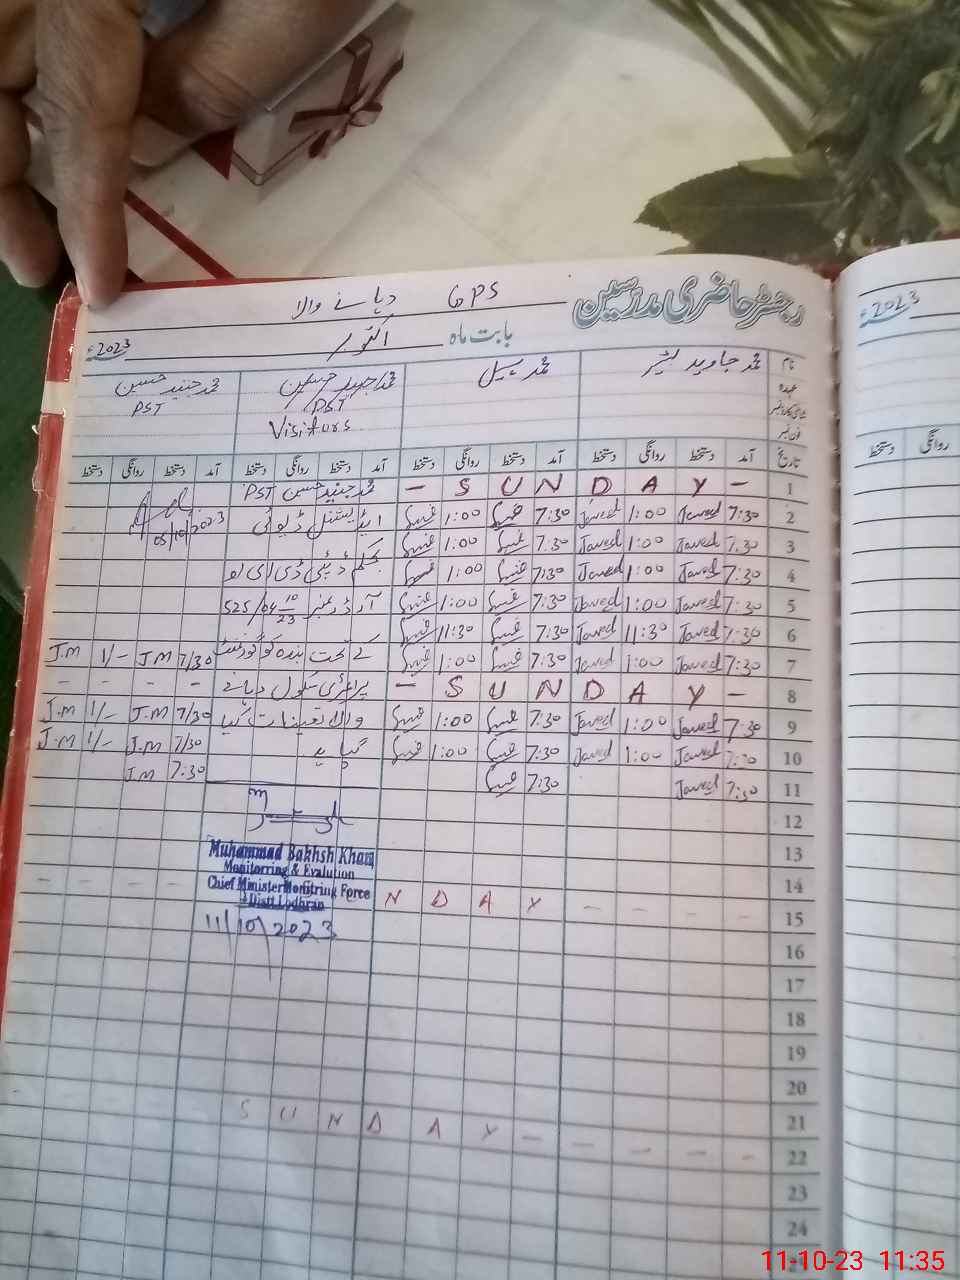 رجسٹر حاضری مدرسین GPS دہانے والا
بابت ماہ اکتوبر 2023ء
نام محمد جاوید بشیر محمد جنید حسین محمد جنید حسین
عہدہ PST PST
Visitors
فون نمبر
تاریخ آمد دستخط روانگی دستخط آمد دستخط روانگی دستخط آمد دستخط روانگی دستخط آمد دستخط روانگی دستخط
1 - S U N D A Y - محمد جنید حسین PST
2 7:30 Javed 1:00 Javed 7:30 1:00 ایڈیشنل ڈیوٹی 05/10/2023
3 7:30 Javed 1:00 Javed 7:30 1:00
4 7:30 Javed 1:00 Javed 7:30 1:00 بحکم ڈپٹی ڈی ای او
5 7:30 Javed 1:00 Javed 7:30 1:00 آرڈر نمبر 525/04 10/23
6 7:30 Javed 11:30 Javed 7:30 11:30
7 7:30 Javed 1:00 Javed 7:30 1:00 کے تحت بندہ کو گورنمنٹ 7/30 J.M 1/- J.M
8 - S U N D A Y - پرائمری سکول دہانے - - - -
9 7:30 Javed 1:00 Javed 7:30 1:00 والا تعینات کیا 7/30 J.M 1/- J.M
10 7:30 Javed 1:00 Javed 7:30 1:00 گیا ہے 7/30 J.M 1/- J.M
11 7:30 Javed 7:30 7:30 J.M
12
13
Muhammad Bakhsh Kham
Monitorring & Evalution
14
Chief Minister Monitring Force
Distt Lodhran
15 N D A Y - - - - -
11/10/2023
16
17
18
19
20
21
22 S U N D A Y - - - - -
23
24
2023ء
روانگی دستخط
11-10-23 11:35